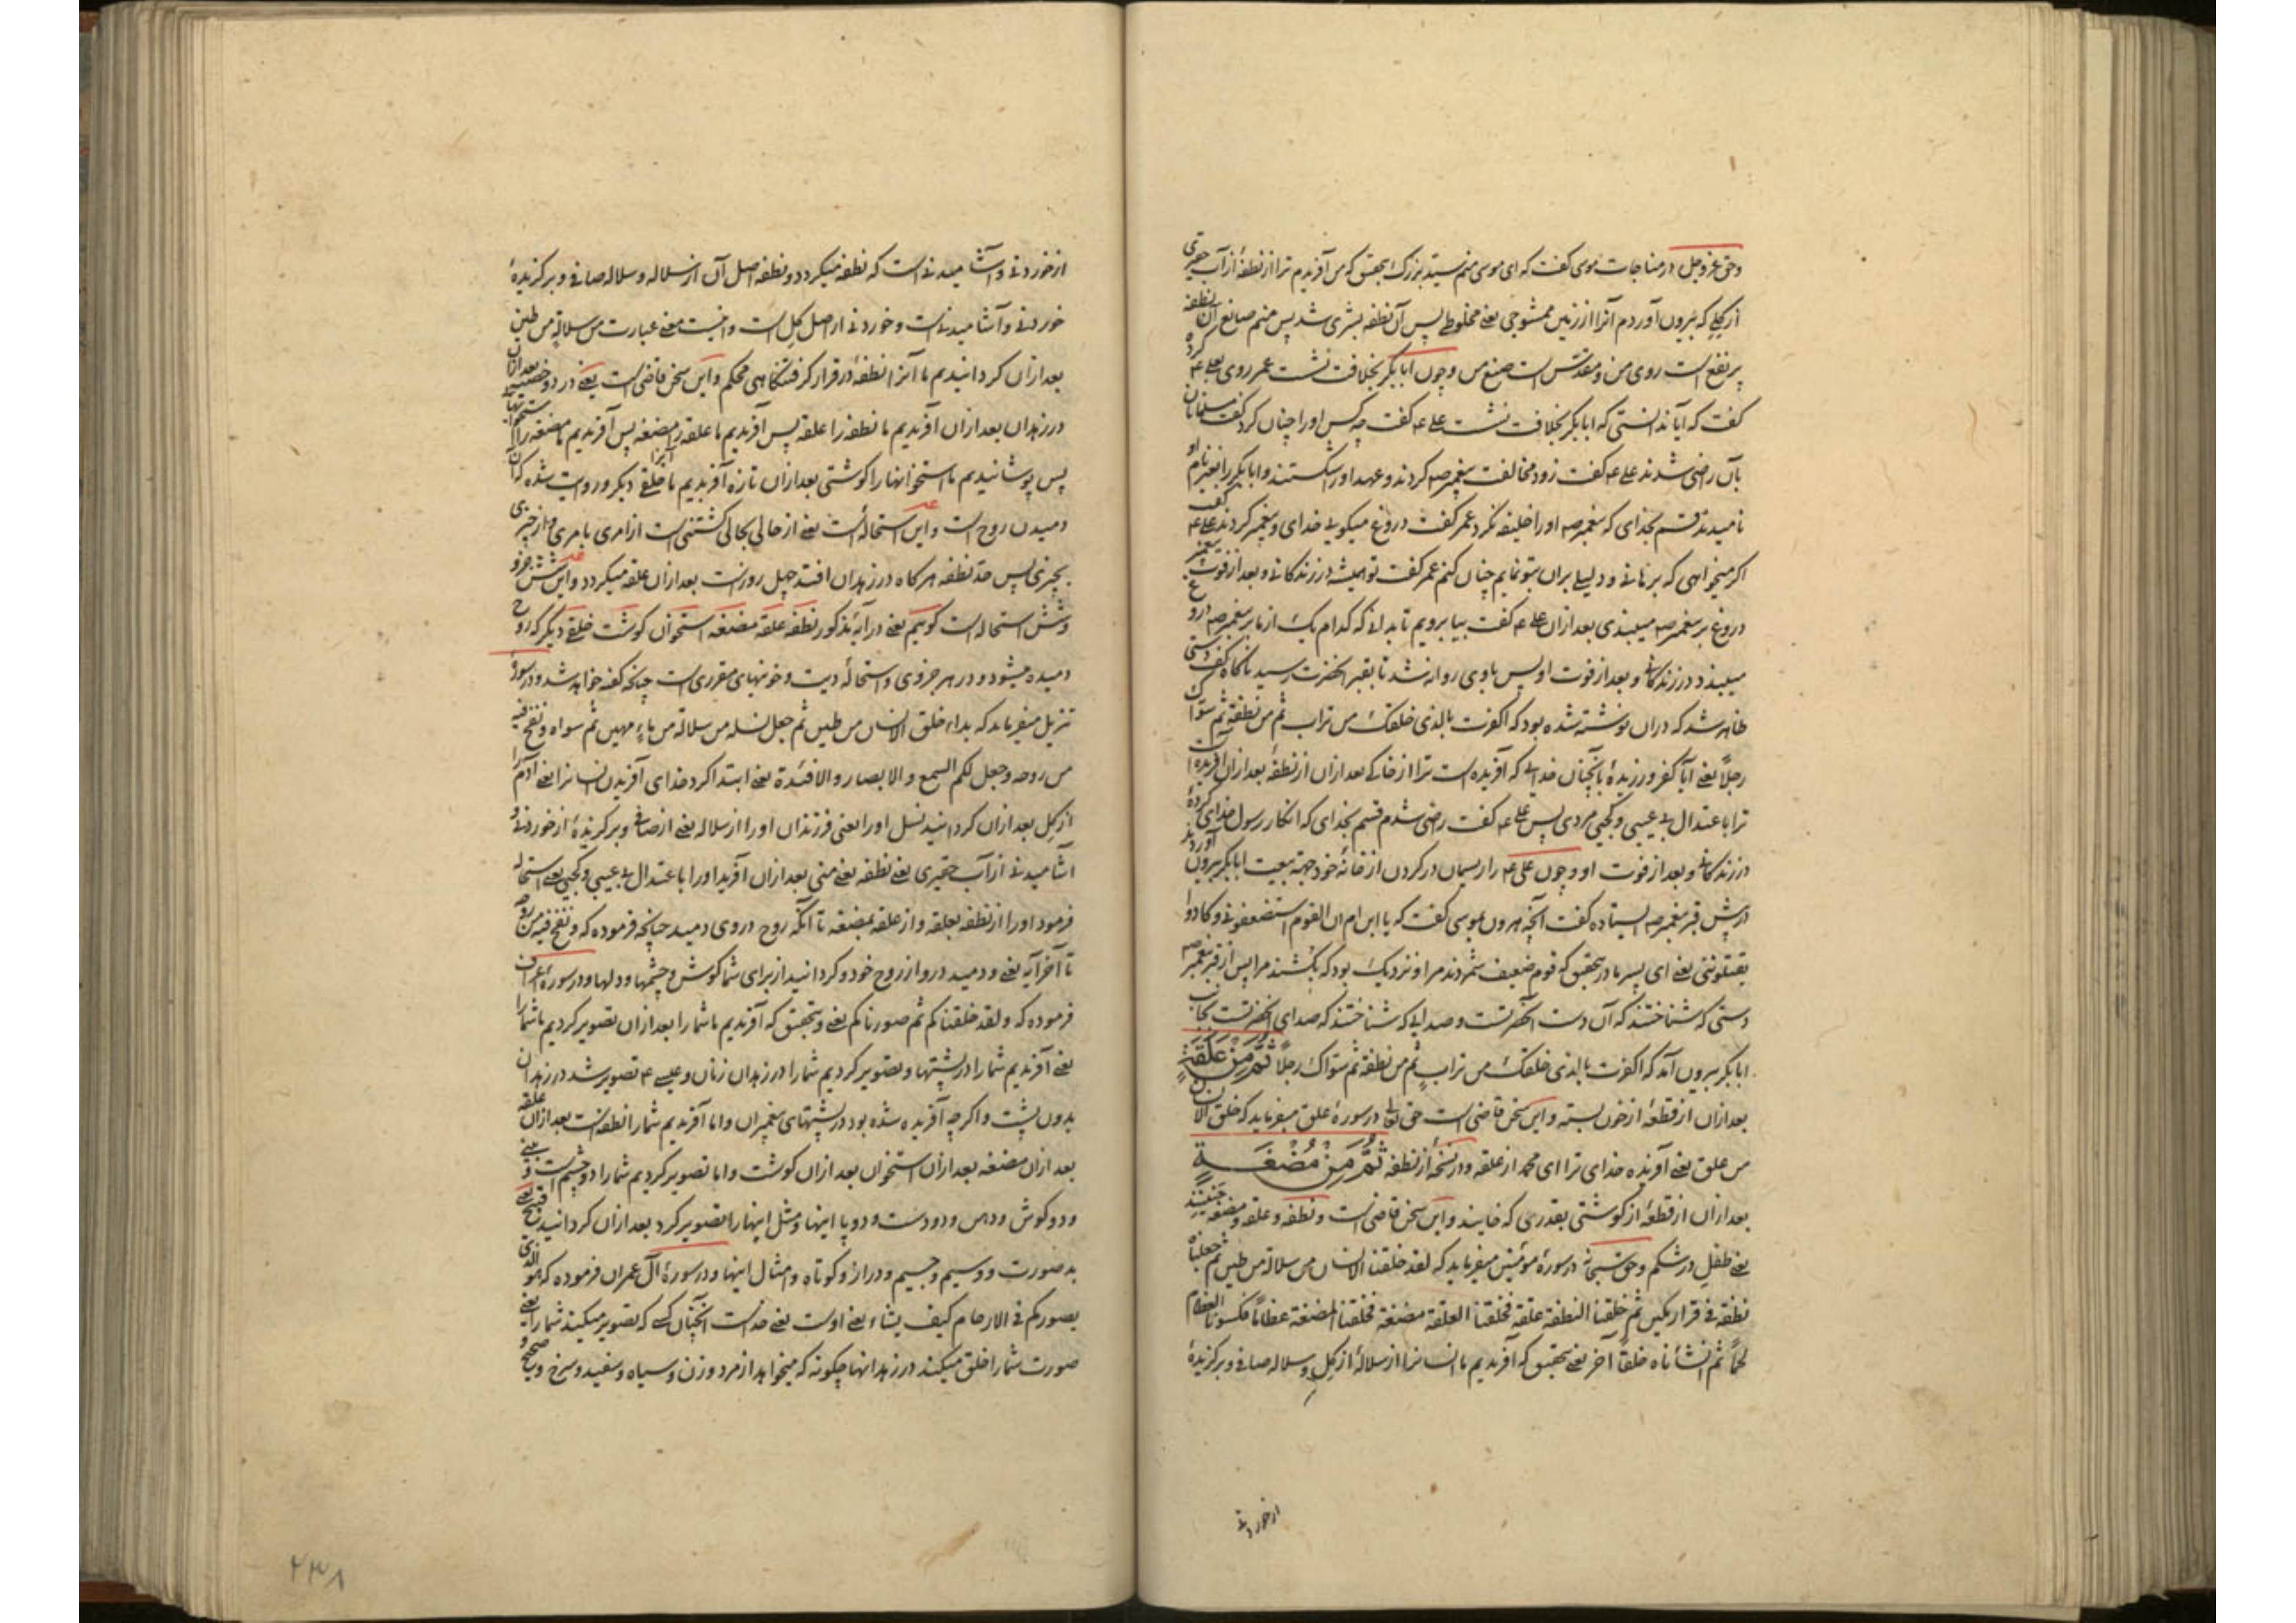 وحق عز وجل در مناجات موسی کفت که ای موسی منم سید بزرک بتحقیق که من آفریدم ترا از نطفهٔ از آب حقیری
از کلی که بیرون آوردم آنرا از زمین ممشوجی یعنے مخلوطے پس آن نطفه بشری شد پس منم صانع آن نطفه
پر نفع است روی من و مقدس است صنع من وچون ابابکر بخلافت نشست عمر روی بعلے ع کرده
کفت که آیا ندانستی که ابابکر بخلافت نشست علے ع کفت چه کس اورا چنان کرد کفت مسلمانان
بآن راضی شدند علے ع کفت زود مخالفت پیغمبر صه کردند و عهد او را شکستند و ابابکر را بغیر نام او
نامیدند قسم بخدای که پیغمبر صه اورا خلیفه نکرد عمر کفت دروغ میکویے خدای و پیغمبر کردند علے ع کفت
اکر میخواهی که برهانے و دلیلے بران بتو نمایم چنان کنم عمر کفت تو همیشه در زندکانے و بعد از فوت پیغمبر
دروغ بر پیغمبر صه میبندی بعد ازان علے ع کفت بیا برویم تا بدانے که کدام یک از ما بر پیغمبر صه دروغ
میبندد در زندکانے و بعد از فوت او پس با وی روانه شد تا بقبر آنحضرت رسید ناکاه کف دستی
ظاهر شد که دران نوشته شده بود که اکفرت بالذی خلقک من تراب ثم من نطفة ثم سواک
رجلاً یعنے آیا کفر ورزیدهٔ بآنچنان خدایے که آفریده است ترا از خاکے بعد ازان از نطفهٔ بعد ازان آفریده است
ترا با عتدال بے عیبی و کجیی مردی پس علے ع کفت راضی شدم قسم بخدای که انکار رسول خدای کردهٔ
در زندکانے و بعد از فوت او وچون علی ع را ریسمان در کردن از خانهٔ خود جهة بیعت ابابکر بیرون آوردند
در پیش قبر پیغمبر صه ایستاده کفت آنچه هرون بموسی کفت که یا ابن ام ان القوم استضعفونے و کادوا
یقتلوننی یعنے ای پسر مادر بتحقیق که قوم ضعیف شمردند مرا و نزدیک بود که بکشند مرا پس از قبر پیغمبر صه
دستی که شناختند که آن دست آنحضرتست و صدایے که شناختند که صدای آنحضرتست بجانب
ابابکر بیرون آمد که اکفرت بالذی خلقک من تراب ثم من نطفة ثم سواک رجلاً ثُمَّ مِنْ عَلَقَةٍ
بعد ازان از قطعهٔ از خون بسته و این سخن قاضی است حق تعالے در سورهٔ علق میفرماید که خلق الانسان
من علق یعنے آفریده خدای ترا ای محمد از علقه و در نسخهٔ از نطفه ثُمَّ مِنْ مُضْغَةٍ
بعد ازان از قطعهٔ از کوشتی بقدری که خایند و این سخن قاضی است و نطفه و علقه و مضغه جنینند
یعنے طفل در شکم وحق سبحانه در سورهٔ مؤمنین میفرماید که لقد خلقنا الانسان من سلالة من طین ثم جعلناه
نطفة فے قرار مکین ثم خلقنا النطفة علقة فخلقنا العلقة مضغة فخلقنا المضغة عظاماً فکسونا العظام
لحماً ثم انشأناه خلقاً آخر یعنے بتحقیق که آفریدیم ما انسانرا از سلالهٔ از کل و سلاله صافے و برکزیدهٔ
از خوردنے
از خوردنے و آشامیدنے است که نطفه میکردد و نطفه اصل آن از سلاله و سلاله صافے و برکزیدهٔ
خوردنے و آشامیدنے است و خوردنے از اصل کل است و اینست معنے عبارت من سلالة من طین
بعد ازان کردانیدیم ما آنرا نطفهٔ در قرار کرفتنکاهی محکم و این سخن قاضی است یعنے در دو خصیه بعد ازان
در زهدان بعد ازان آفریدیم ما نطفه را علقه پس آفریدیم ما علقه را مضغه پس آفریدیم ما مضغه را استخوانها
پس پوشانیدیم ما استخوانها را کوشتی بعد ازان تازه آفریدیم ما آنرا خلقے دیکر و روایت شده که آن
دمیدن روح است و این استحاله است یعنے از حالی بحالی کشتنی است از امری بامری و از چیزی
بچیزی پس حد نطفه هرکاه در زهدان افتد چهل روز است بعد ازان علقه میکردد و این شش جزو
و شش استحاله است کویم یعنے در آیهٔ مذکور نطفه علقه مضغه استخوان کوشت خلقے دیکر که روح
دمیده میشود و در هر جزوی و استحالهٔ دیت و خونبهای مقرری است چنانکه کفته خواهد شد و در سورهٔ
تنزیل میفرماید که بداء خلق الانسان من طین ثم جعل نسله من سلالة من ماء مهین ثم سواه و نفخ فیه
من روحه و جعل لکم السمع و الابصار و الافئدة یعنے ابتدا کرد خدای آفریدن انسانرا یعنے آدم را
از کل بعد ازان کردانید نسل اورا یعنی فرزندان اورا از سلاله یعنے از صافے و برکزیدهٔ از خوردنے و
آشامیدنے از آب حقیری یعنے نطفه یعنے منی بعد ازان آفرید اورا با عتدال بے عیبی و کجیی یعنے استحاله
فرمود اورا از نطفه بعلقه و از علقه بمضغه تا آنکه روح در وی دمید چنانچه فرموده که و نفخ فیه من روحه
تا آخر آیه یعنے و دمید در و از روح خود و کردانید از برای شما کوش و چشمها و دلها و در سورهٔ اعراف
فرموده که و لقد خلقناکم ثم صورناکم یعنے و بتحقیق که آفریدیم ما شما را بعد ازان تصویر کردیم ما شما را
یعنے آفریدیم شما را در پشتها و تصویر کردیم شما را در زهدان زنان و عیسے ع تصویر شد در زهدان
بدون پشت و اکرچه آفریده شده بود در پشتهای پیغمبران و اما آفریدیم شما را نطفه است بعد ازان علقه
بعد ازان مضغه بعد ازان استخوان بعد ازان کوشت و اما تصویر کردیم شما را دو چشم است و بینے
و دو کوش و دهن و دو دست و دو پا اینها و مثل اینها را تصویر کرد بعد ازان کردانید قبیح یعنے
بد صورت و وسیم و جسیم و دراز و کوتاه و امثال اینها و در سورهٔ آل عمران فرموده که هو الذی
یصورکم فے الارحام کیف یشاء یعنے اوست یعنے خداست آنچنان کسے که تصویر میکند شما را یعنے
صورت شما را خلق میکند در زهدانها چکونه که میخواهد از مرد و زن و سیاه و سفید و سرخ و صحیح و
۲۳۸